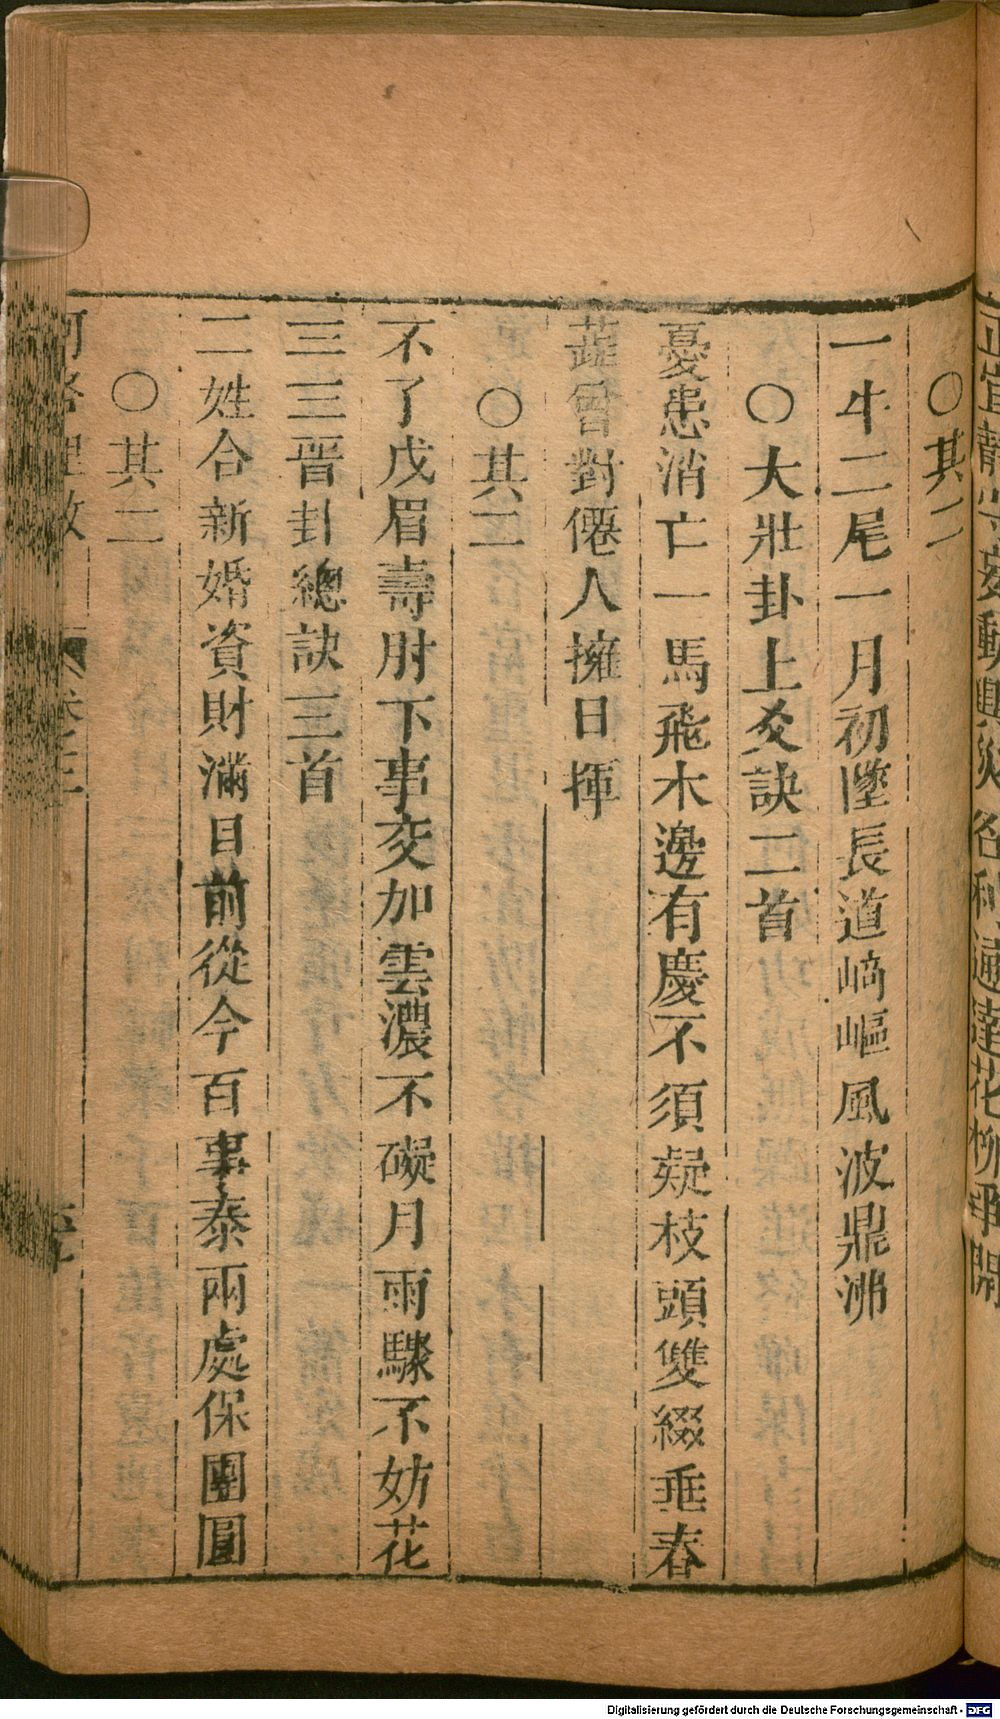 正宜龍 妄動興災咎利通達花柳 開
○其二
一牛二尾一月初墜長道崎嶇風波鼎沸
○大壯卦上爻訣二首
憂患消亡一馬飛木邊有慶不須疑枝頭雙綴垂春
蕋曾對僊人擁日揮
○其二
不了戊眉壽肘下事交加雲濃不礙月雨驟不妨花
三三晉卦總訣三首
二姓合新婚資財滿目前從今百事泰兩處保團圓
○其二
河洛理數 卷之
Digitalisierung gefördert durch die Deutsche Forschungsgemeinschaft - DFG